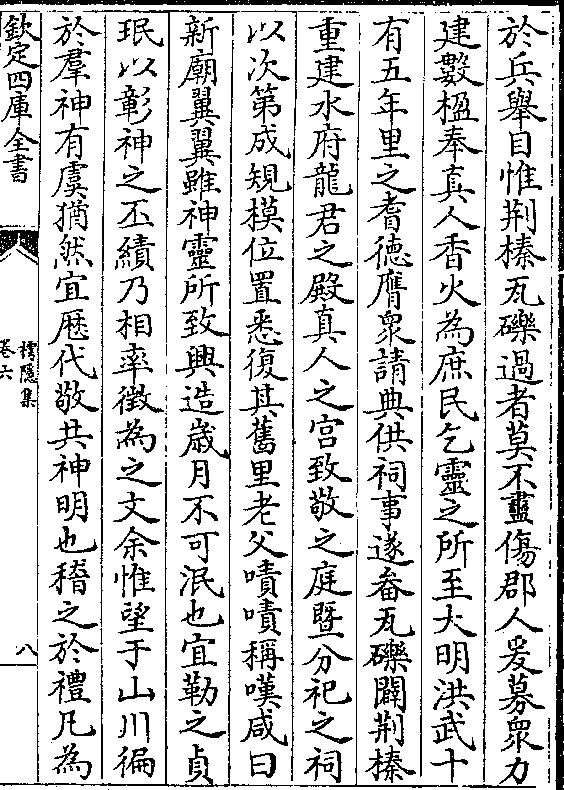 於兵舉目惟荆榛瓦礫過者莫不衋傷郡人爰募衆力
建數楹奉真人香火為庶民乞靈之所至大明洪武十
有五年里之耆德膺衆請典供祠事遂畚瓦礫闢荆榛
重建水府龍君之殿真人之宮致敬之庭暨分祀之祠
以次第成規模位置悉復其舊里老父嘖嘖稱嘆咸曰
新廟翼翼雖神靈所致興造嵗月不可泯也宜勒之貞
珉以彰神之丕績乃相率徴為之文余惟望于山川徧
於羣神有虞猶然宜厯代敬共神明也稽之於禮凡為
欽定四庫全書
樗隱集
卷六
八